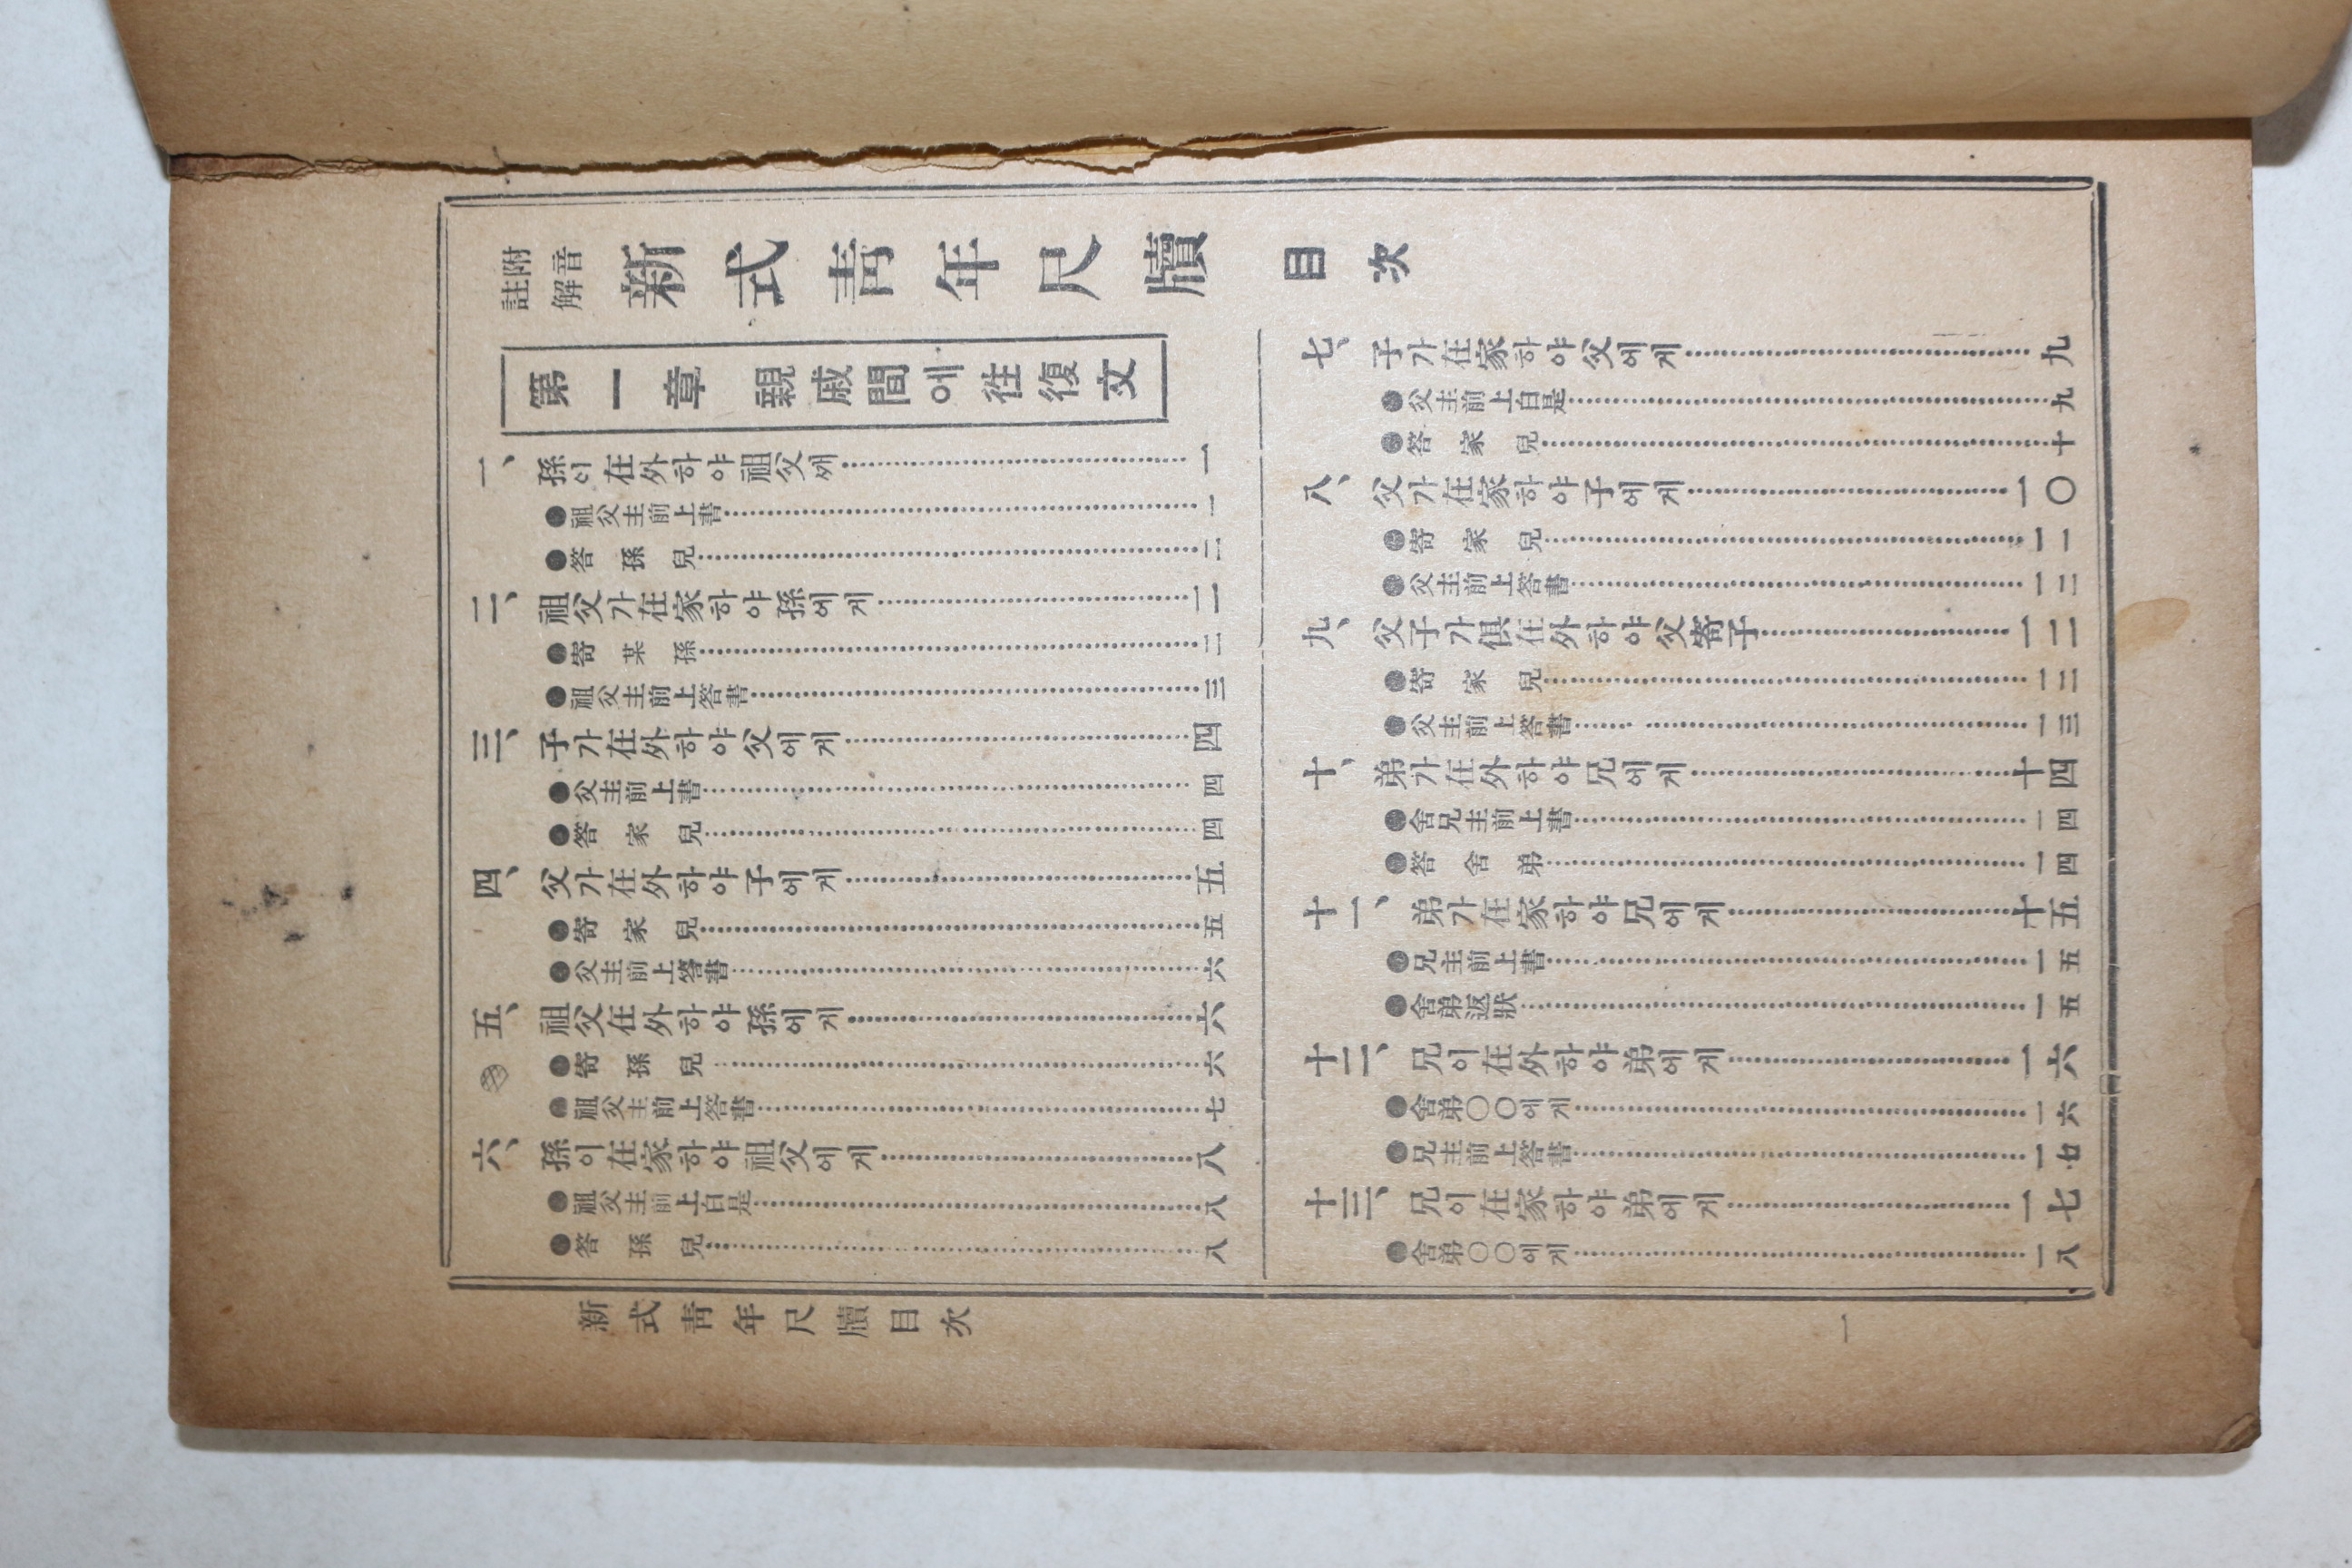 附音註解 新式靑年尺牘 目次
第一章 親戚間에往復文
一、孫이在外하야祖父께 一
●祖父主前上書 一
●答孫兒 二
二、祖父가在家하야孫에게 二
●寄某孫 二
●祖父主前上答書 三
三、子가在外하야父에게 四
●父主前上書 四
●答家兒 四
四、父가在外하야子에게 五
●寄家兒 五
●父主前上答書 六
五、祖父在外하야孫에게 六
●寄孫兒 六
●祖父主前上答書 七
六、孫이在家하야祖父에게 八
●祖父主前上白是 八
●答孫兒 八
七、子가在家하야父에게 九
●父主前上白是 九
●答家兒 十
八、父가在家하야子에게 一〇
●寄家兒 一一
●父主前上答書 一二
九、父子가俱在外하야父寄子 一二
●寄家兒 一二
●父主前上答書 一三
十、弟가在外하야兄에게 十四
●舍兄主前上書 一四
●答舍弟 一四
十一、弟가在家하야兄에게 十五
●兄主前上書 一五
●舍弟返狀 一五
十二、兄이在外하야弟에게 一六
●舍弟〇〇에게 一六
●兄主前上答書 一七
十三、兄이在家하야弟에게 一七
●舍弟〇〇에게 一八
新式靑年尺牘目次 一